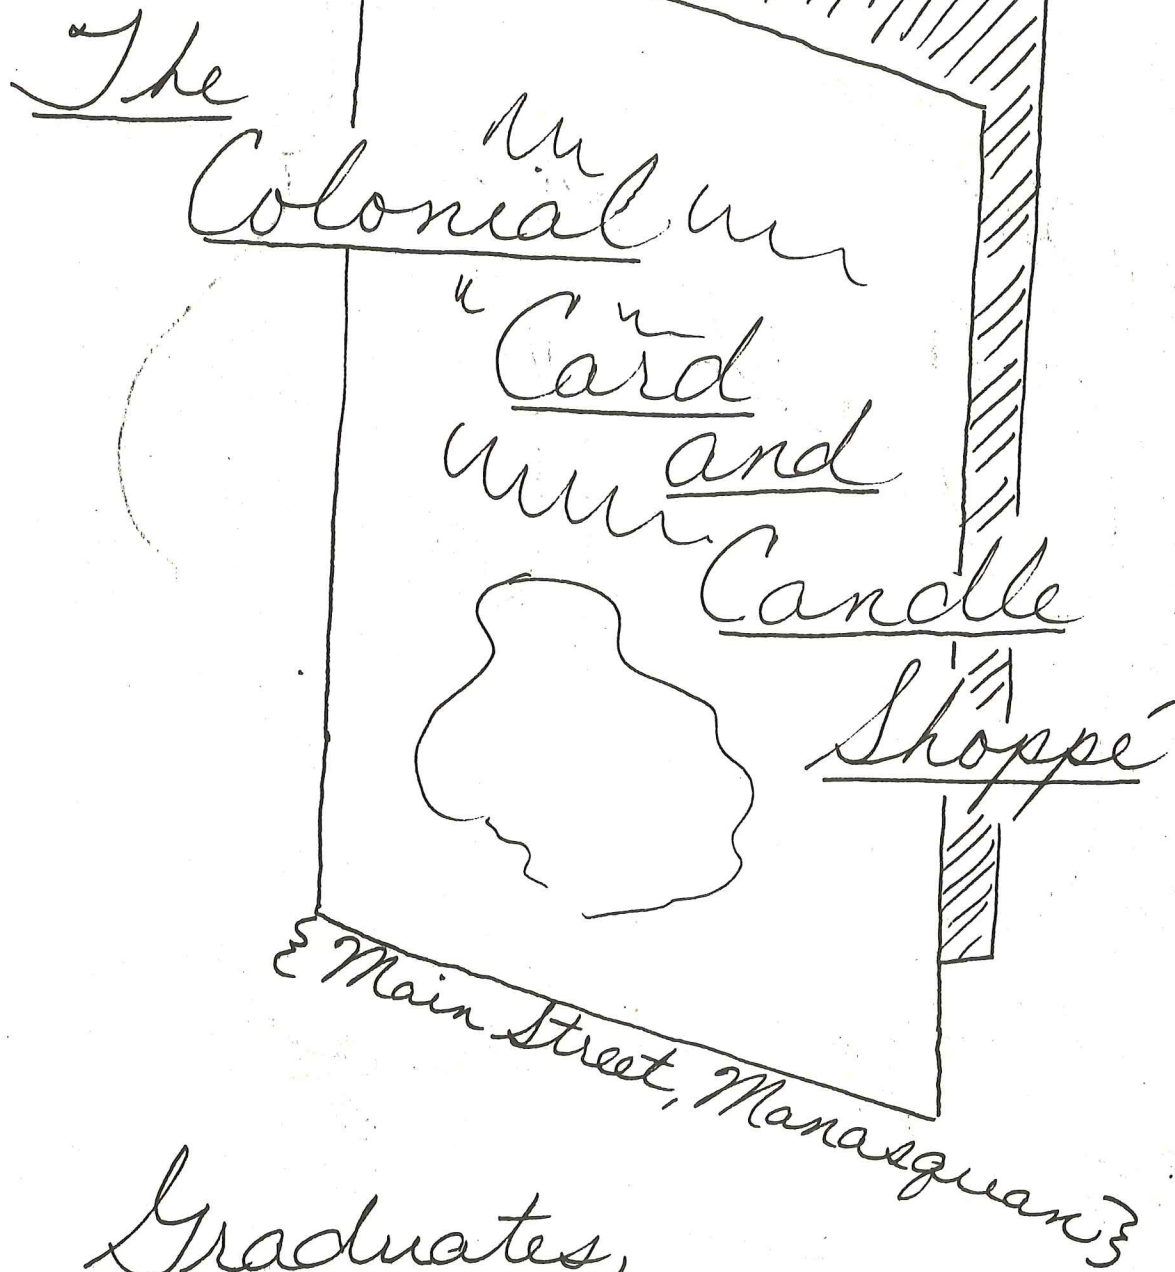 The
Colonial
Card
and
Candle
Shoppé
{Main Street, Manasquan}
Graduates,